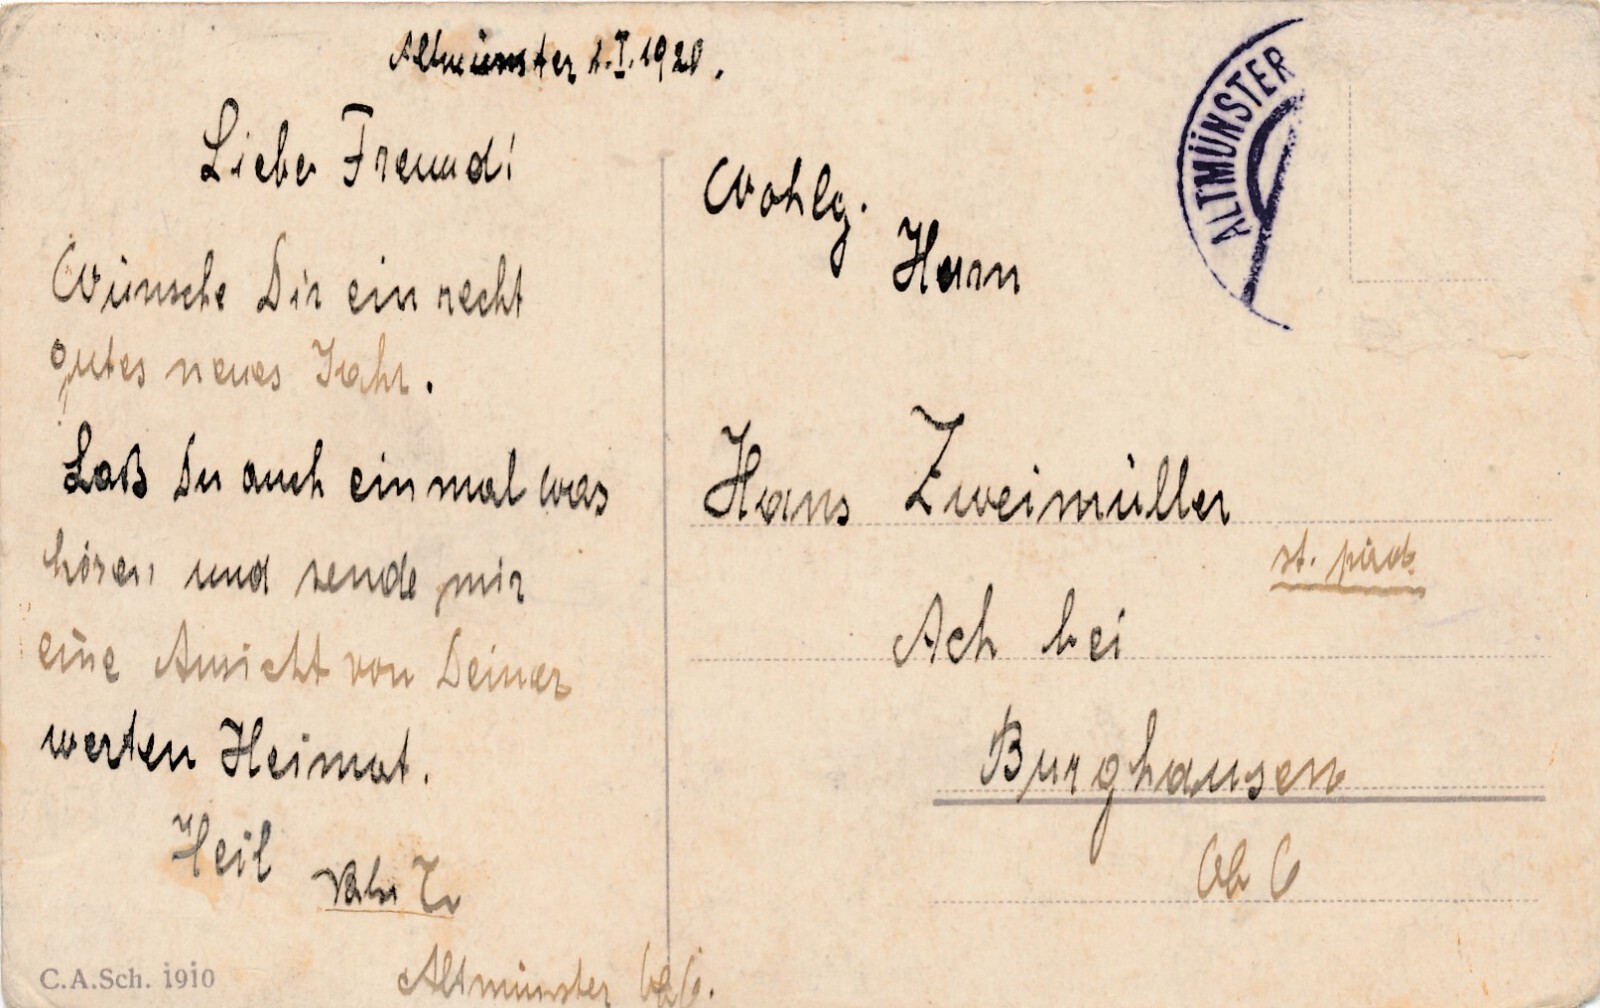 Altmünster 1.I.1920.
Lieber Freund!
Wünsche Dir ein recht
gutes neues Jahr.
Laß Du auch einmal was
hören und sende mir
eine Ansicht von Deiner
werten Heimat.
Heil
Altmünster
C.A.Sch. 1910
ALTMÜNSTER
Wohlg.
Herrn
Hans Zweimüller
Ach bei
Burghausen